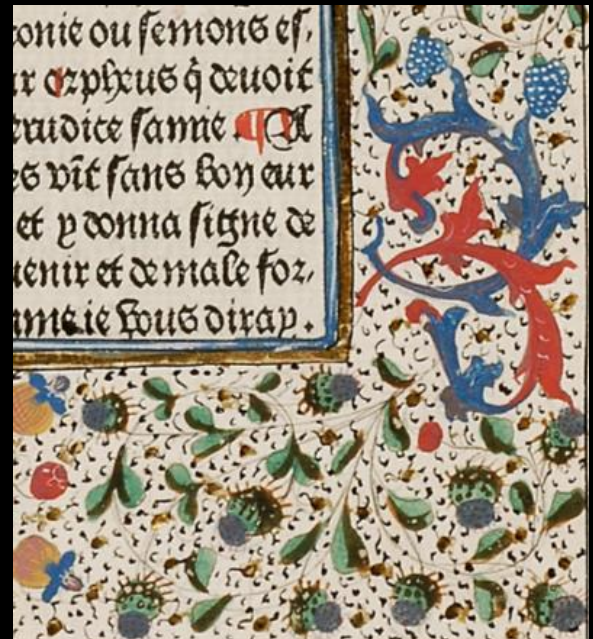 conie ou semons es,
ur orpheus q̄ deuoit
erudice samie. ¶ Al
es vīt sans bon eur
et y donna signe de
uenir et de male for,
mme ie vous diray.